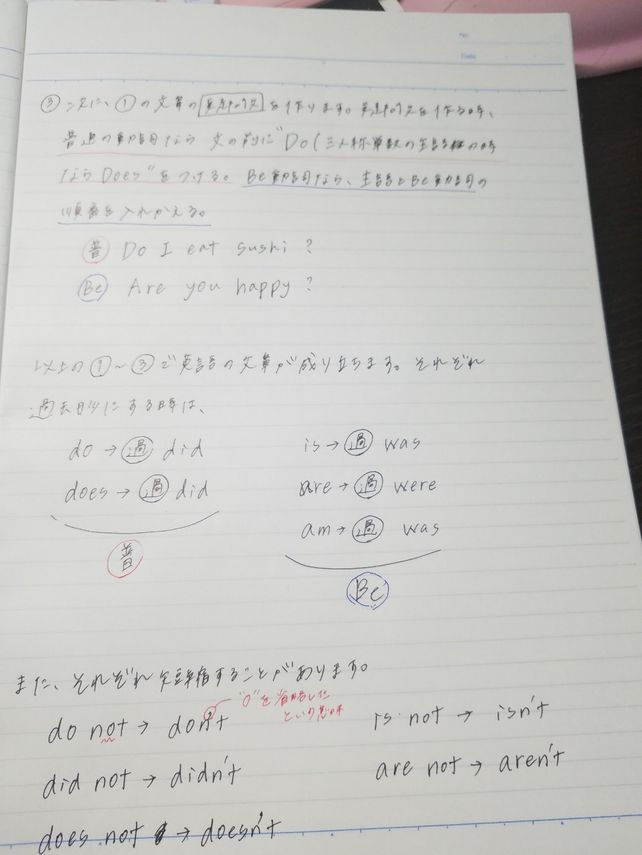 No.
Date
③ 次に、①の文章の疑問文を作ります。疑問文を作る時、
普通の動詞なら 文の前に"Do(三人称単数の主語の時
ならDoes"をつける。Be動詞なら、主語とBe動詞の
順番を入れかえる。
普 Do I eat sushi ?
Be Are you happy ?
以上の①~③で英語の文章が成り立ちます。それぞれ
過去形にする時は、
do → 過 did is → 過 was
does → 過 did are → 過 were
am → 過 was
普 Be
また、それぞれ短縮することがあります。
"o"を省略した
という意味
do not → don't is not → isn't
did not → didn't are not → aren't
does not → doesn't